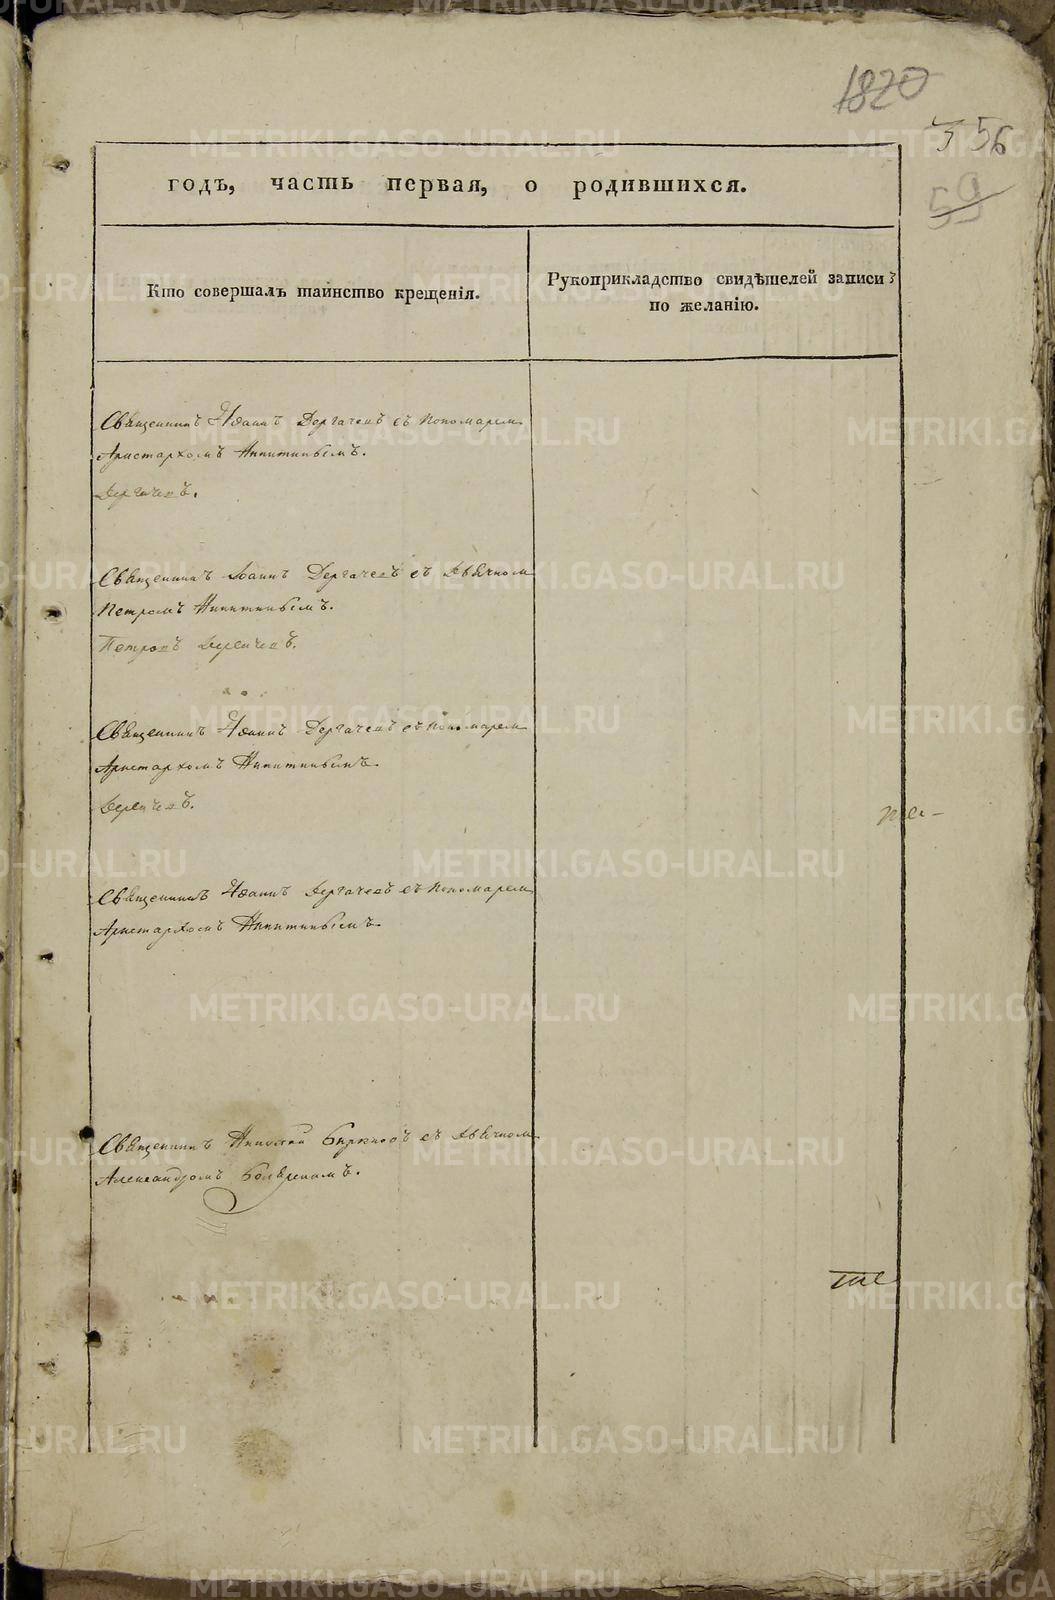 1820
56
59
годъ, часть первая, о родившихся.
Кто совершалъ таинство крещенія.
Рукоприкладство свидѣтелей записи
по желанію.
Священникъ Іоаннъ Дергачевъ съ пономарем
Аристархомъ Никитинымъ.
Дергачевъ.
Священникъ Іоаннъ Дергачевъ съ дьячком
Петромъ Никитинымъ.
Петровъ
Священникъ Іоаннъ Дергачевъ съ пономарем
Аристархомъ Никитинымъ.
Священникъ Іоаннъ Дергачевъ съ пономарем
Аристархомъ Никитинымъ.
Священникъ съ дьячком
Александромъ
METRIKI.GASO-URAL.RU